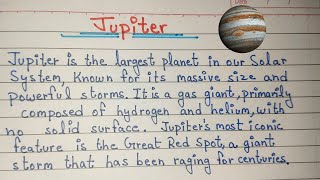 Jupiter
Jupiter is the largest planet in our Solar
System, Known for its massive size and
powerful storms. It is a gas giant, primarily
composed of hydrogen and helium, with
no solid surface. Jupiter's most iconic
feature is the Great Red Spot, a giant
storm that has been raging for centuries.